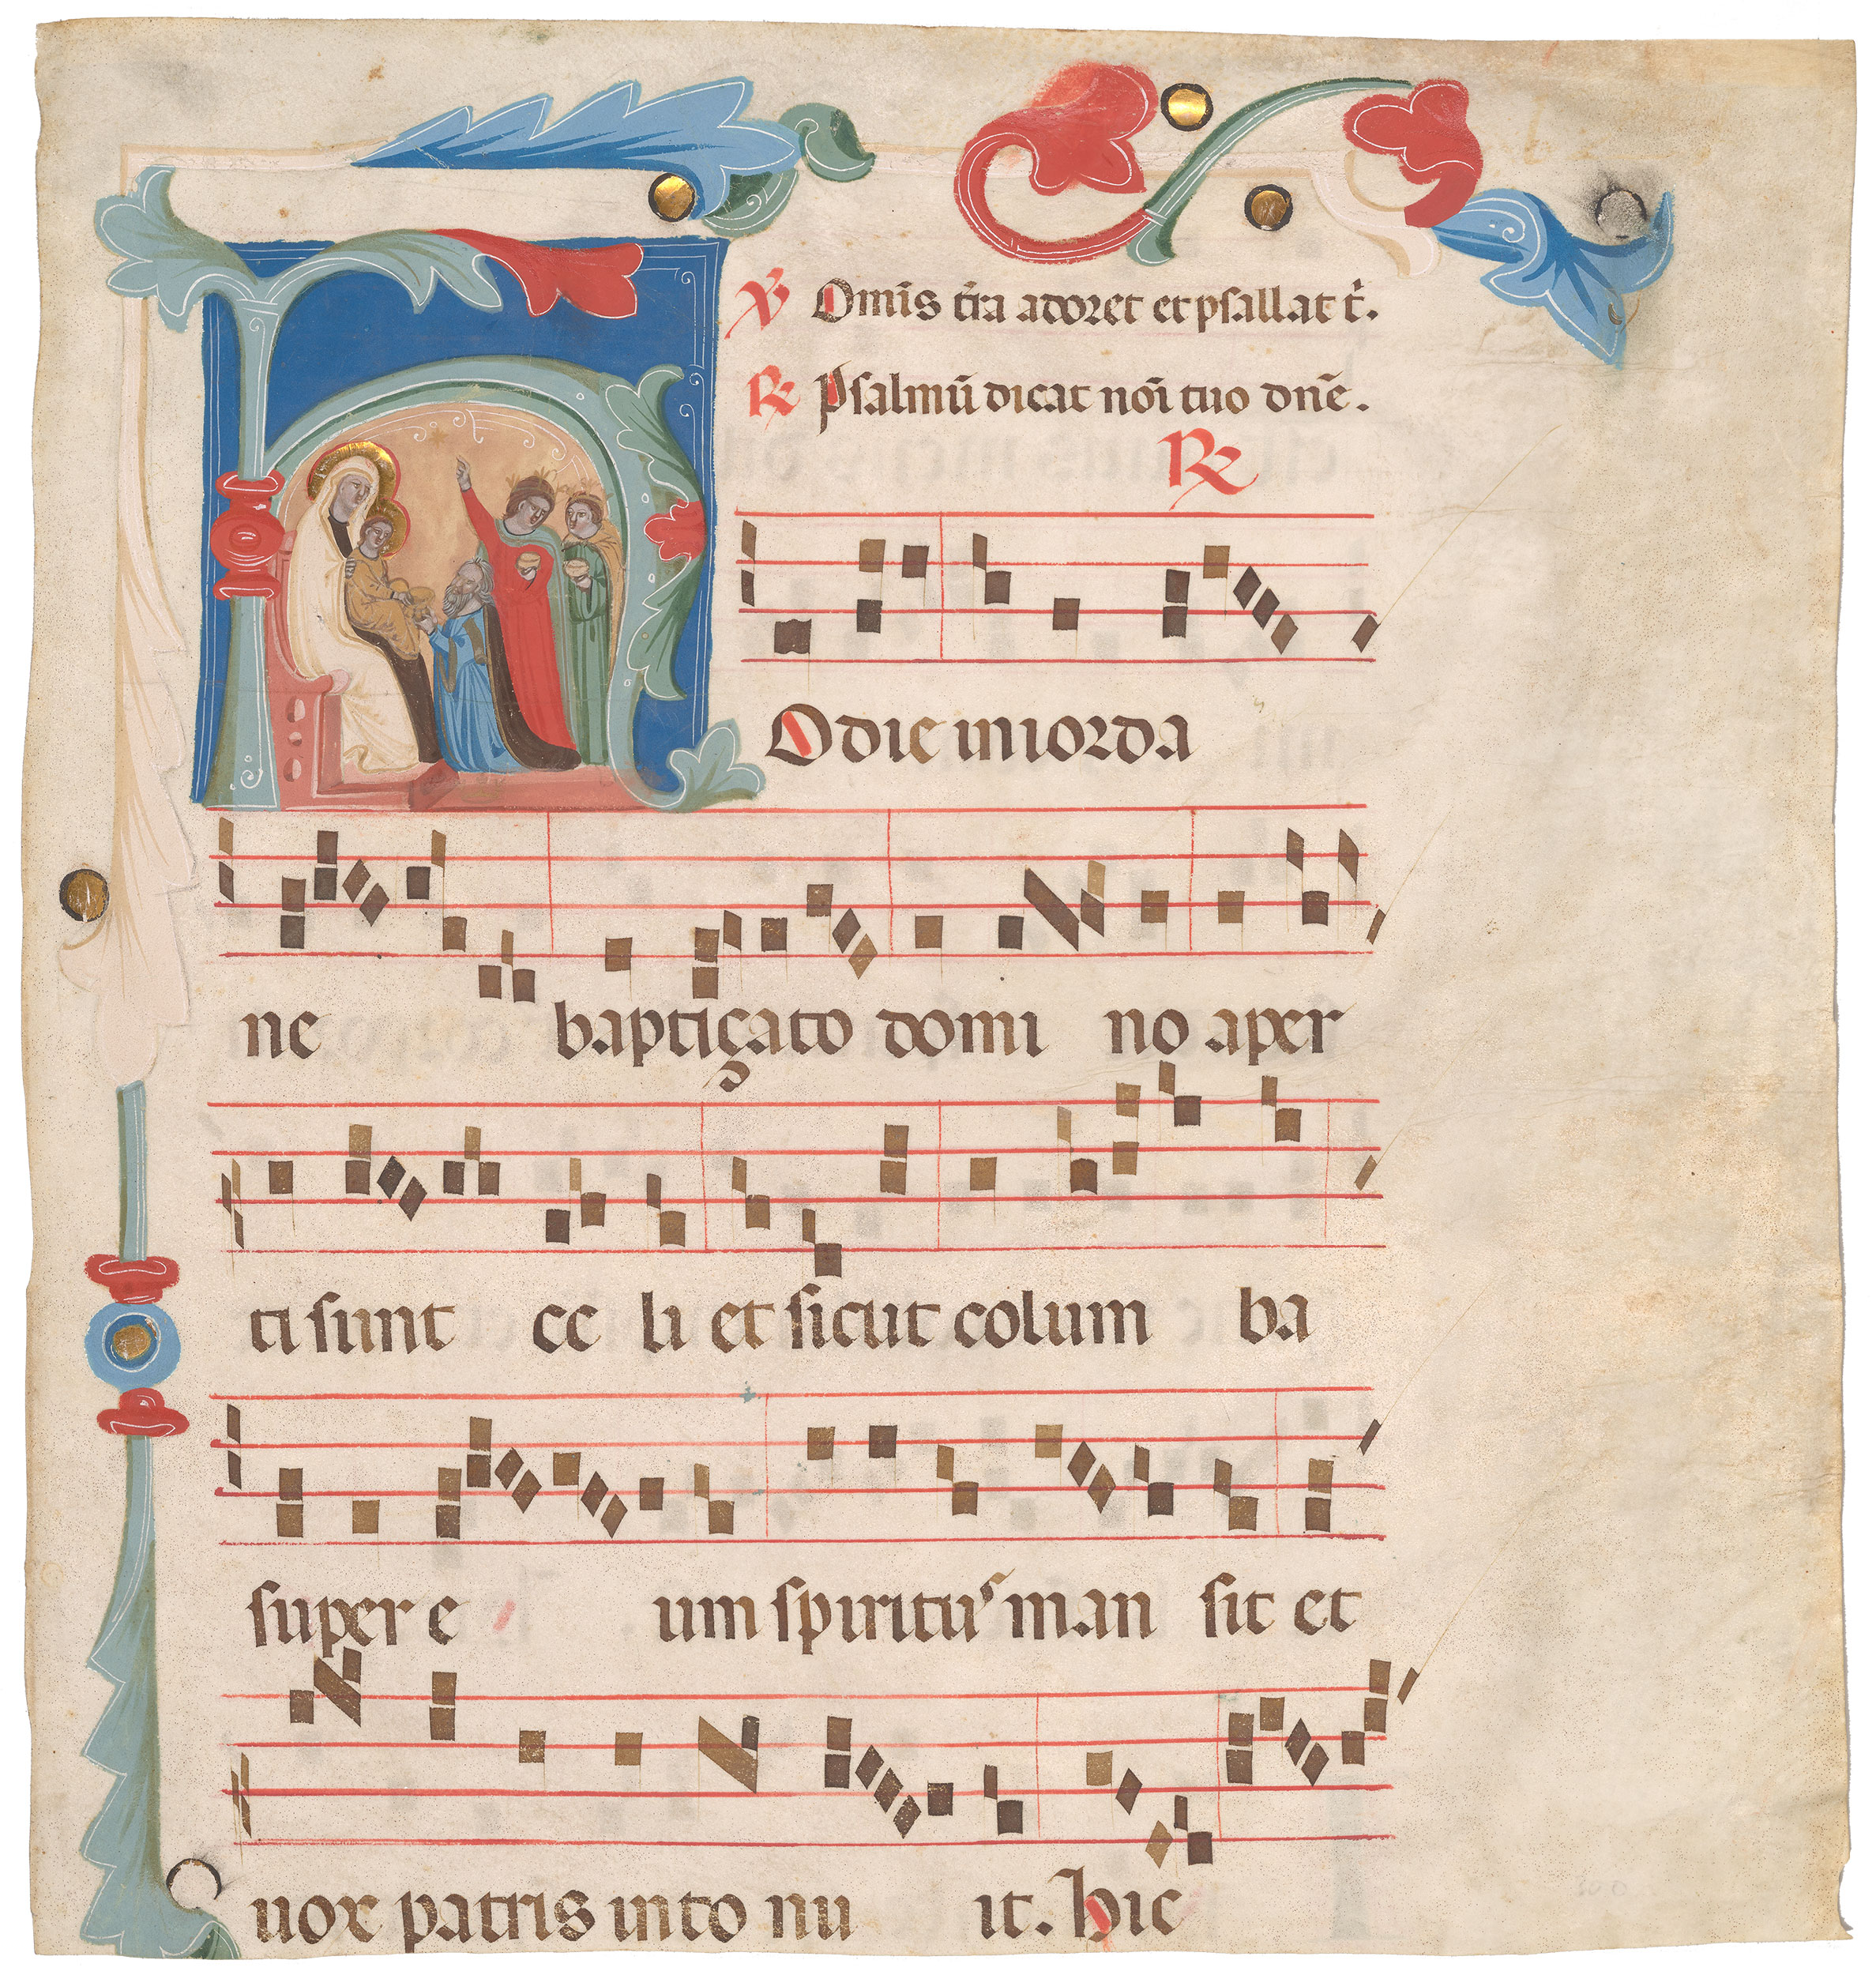 ℣ Omīs t̄ra adoret et psallat t̄.
℟ Psalmū dicat noī tuo dn̄e.
℟
HOdie in iorda
ne baptiçato domi no aper
ti sunt ce li et sicut colum ba
super e um spiritus man sit et
uox patris into nu it. Hic